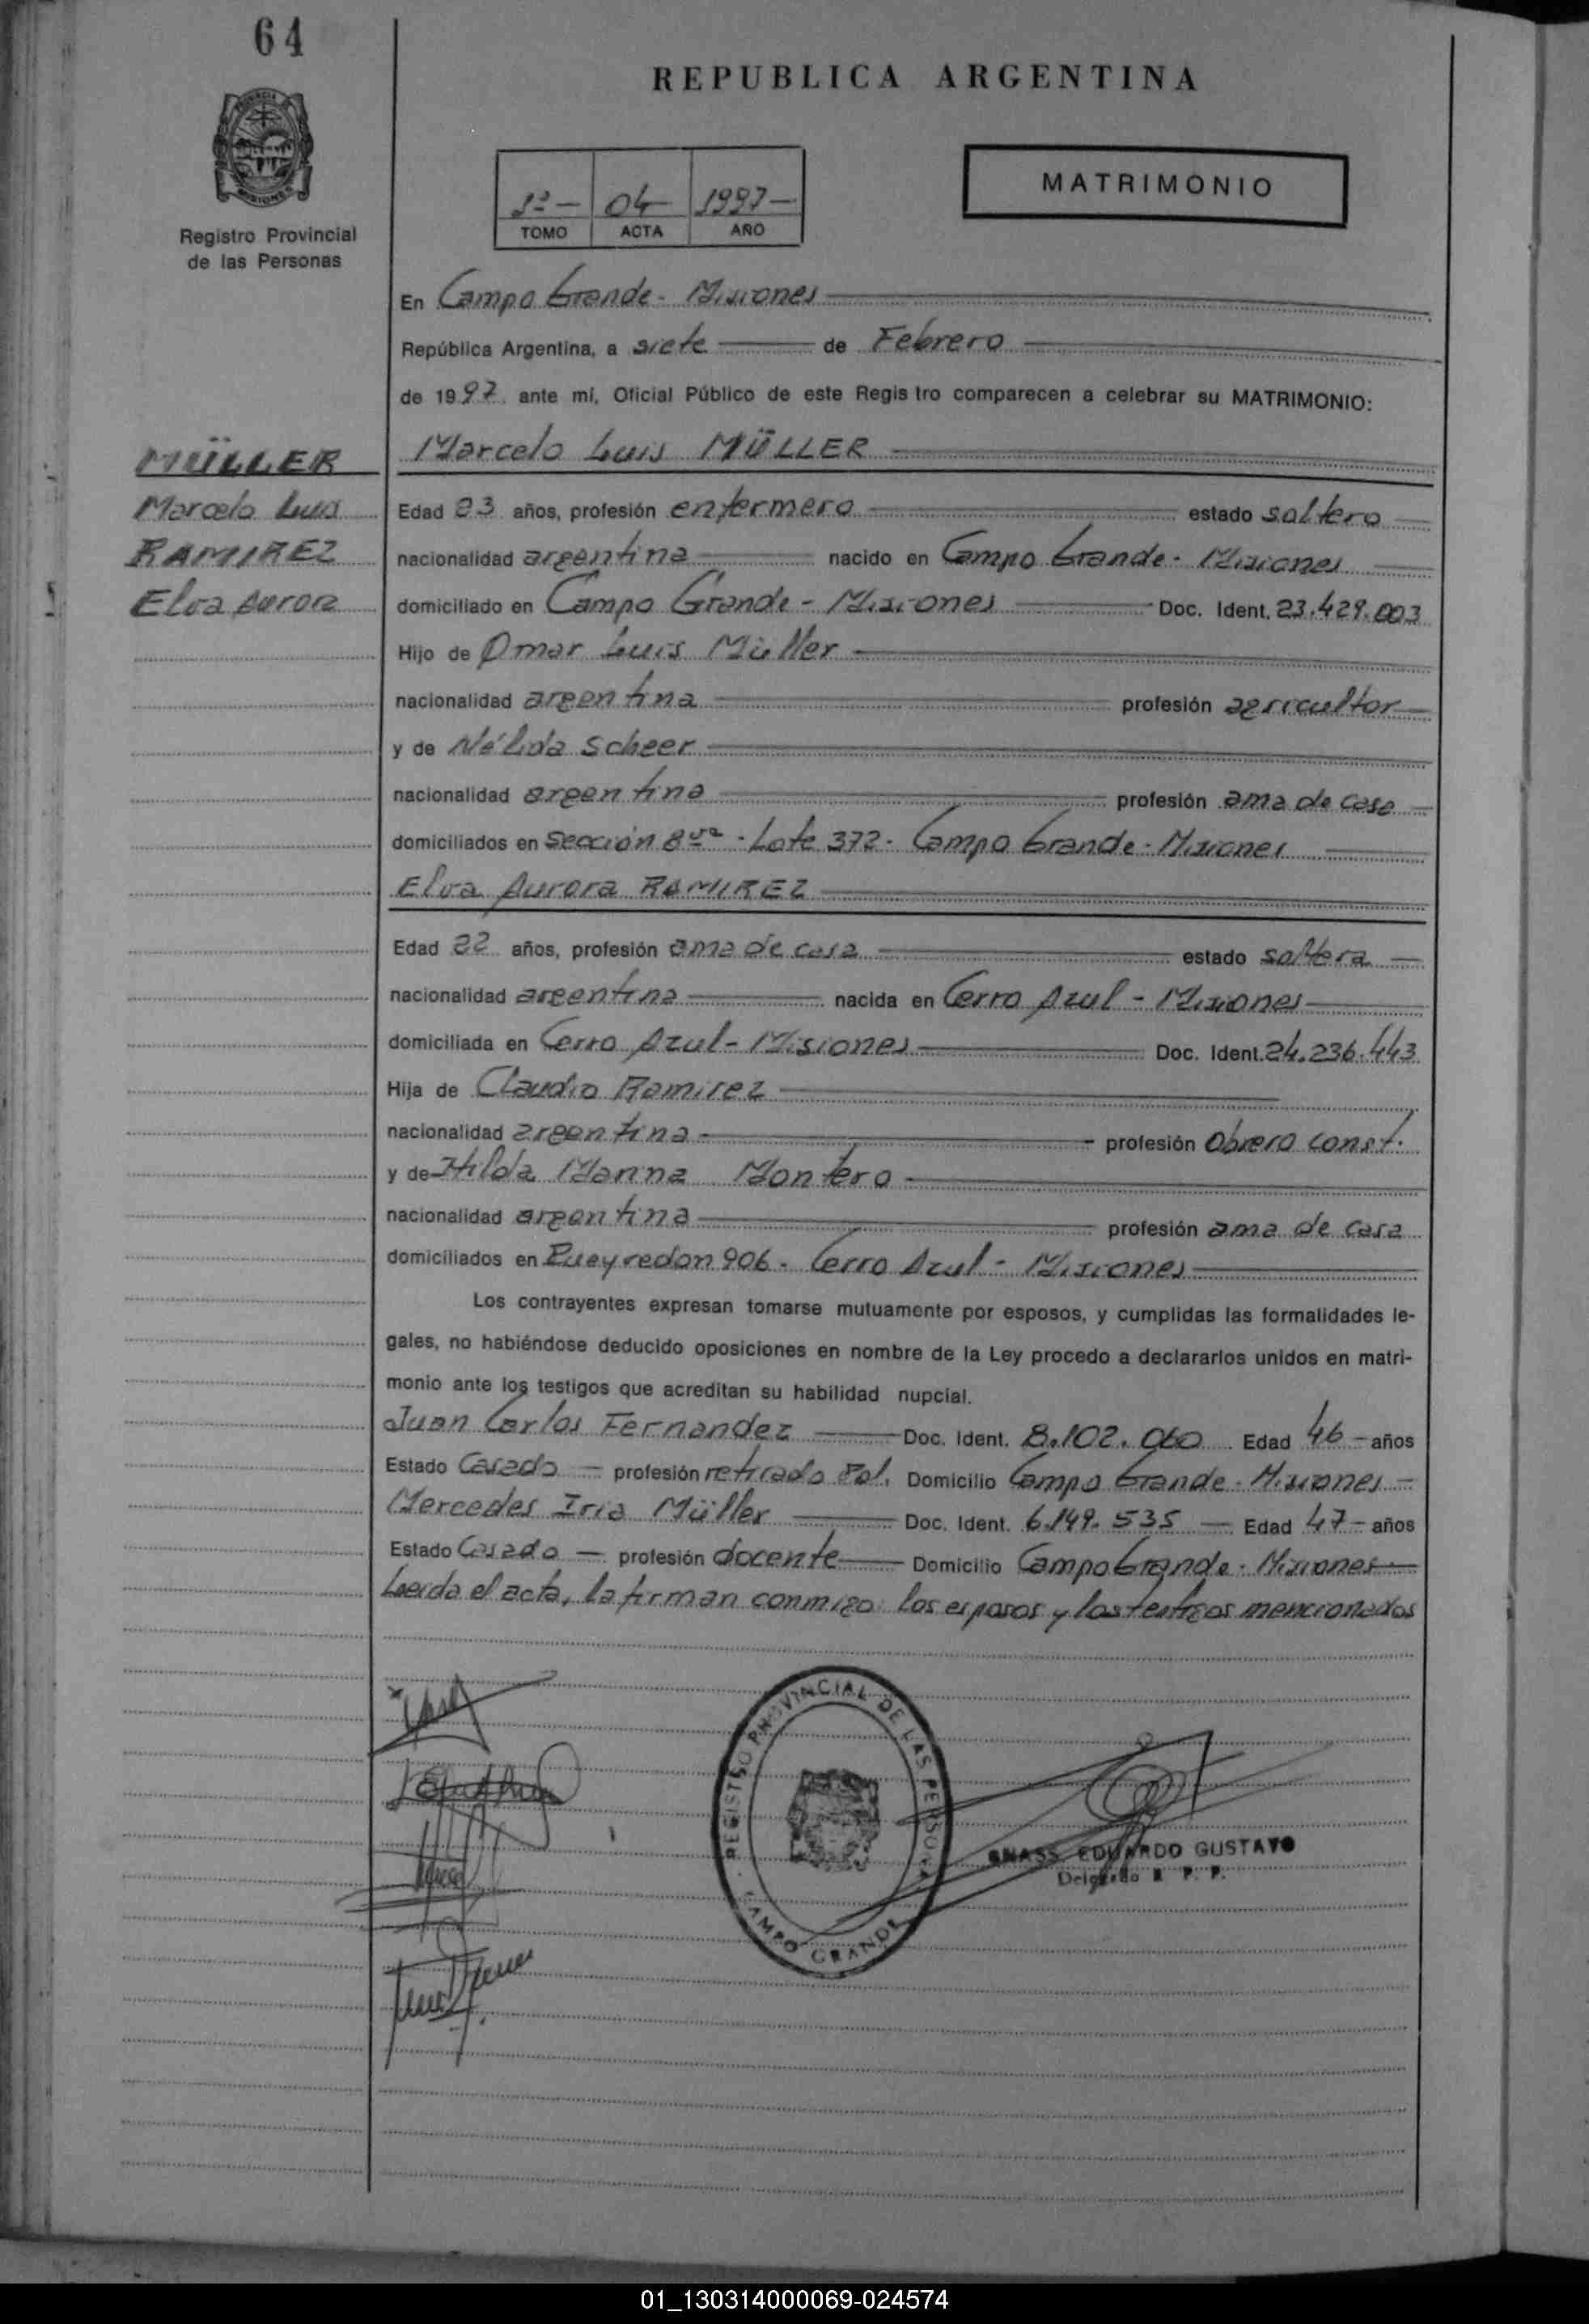 64
REPUBLICA ARGENTINA
MATRIMONIO
1º - 04 1997 -
TOMO ACTA AÑO
Registro Provincial
de las Personas
En Campo Grande - Misiones
República Argentina, a siete de Febrero
de 1997 ante mí, Oficial Público de este Registro comparecen a celebrar su MATRIMONIO:
MÜLLER
Marcelo Luis
RAMIREZ
Elva Aurora
Marcelo Luis MÜLLER
Edad 23 años, profesión enfermero estado soltero
nacionalidad argentina nacido en Campo Grande - Misiones
domiciliado en Campo Grande - Misiones Doc. Ident. 23.429.003
Hijo de Omar Luis Müller
nacionalidad argentina profesión agricultor
y de Nélida Scheer
nacionalidad argentina profesión ama de casa
domiciliados en Sección 8va - Lote 372 - Campo Grande - Misiones
Elva Aurora RAMIREZ
Edad 22 años, profesión ama de casa estado soltera
nacionalidad argentina nacida en Cerro Azul - Misiones
domiciliada en Cerro Azul - Misiones Doc. Ident. 24.236.443
Hija de Claudio Ramirez
nacionalidad argentina profesión obrero const.
y de Hilda Marina Montero
nacionalidad argentina profesión ama de casa
domiciliados en Pueyredon 906 - Cerro Azul - Misiones
Los contrayentes expresan tomarse mutuamente por esposos, y cumplidas las formalidades le-
gales, no habiéndose deducido oposiciones en nombre de la Ley procedo a declararlos unidos en matri-
monio ante los testigos que acreditan su habilidad nupcial.
Juan Carlos Fernandez Doc. Ident. 8.102.060 Edad 46 - años
Estado Casado - profesión retirado Pol. Domicilio Campo Grande - Misiones -
Mercedes Iria Müller Doc. Ident. 6.149.535 - Edad 47 - años
Estado Casada - profesión docente Domicilio Campo Grande - Misiones
Leída el acta, la firman conmigo los esposos y los testigos mencionados
REGISTRO PROVINCIAL DE LAS PERSONAS
CAMPO GRANDE
EDUARDO GUSTAVO
Delegado R. P. P.
01_130314000069-024574